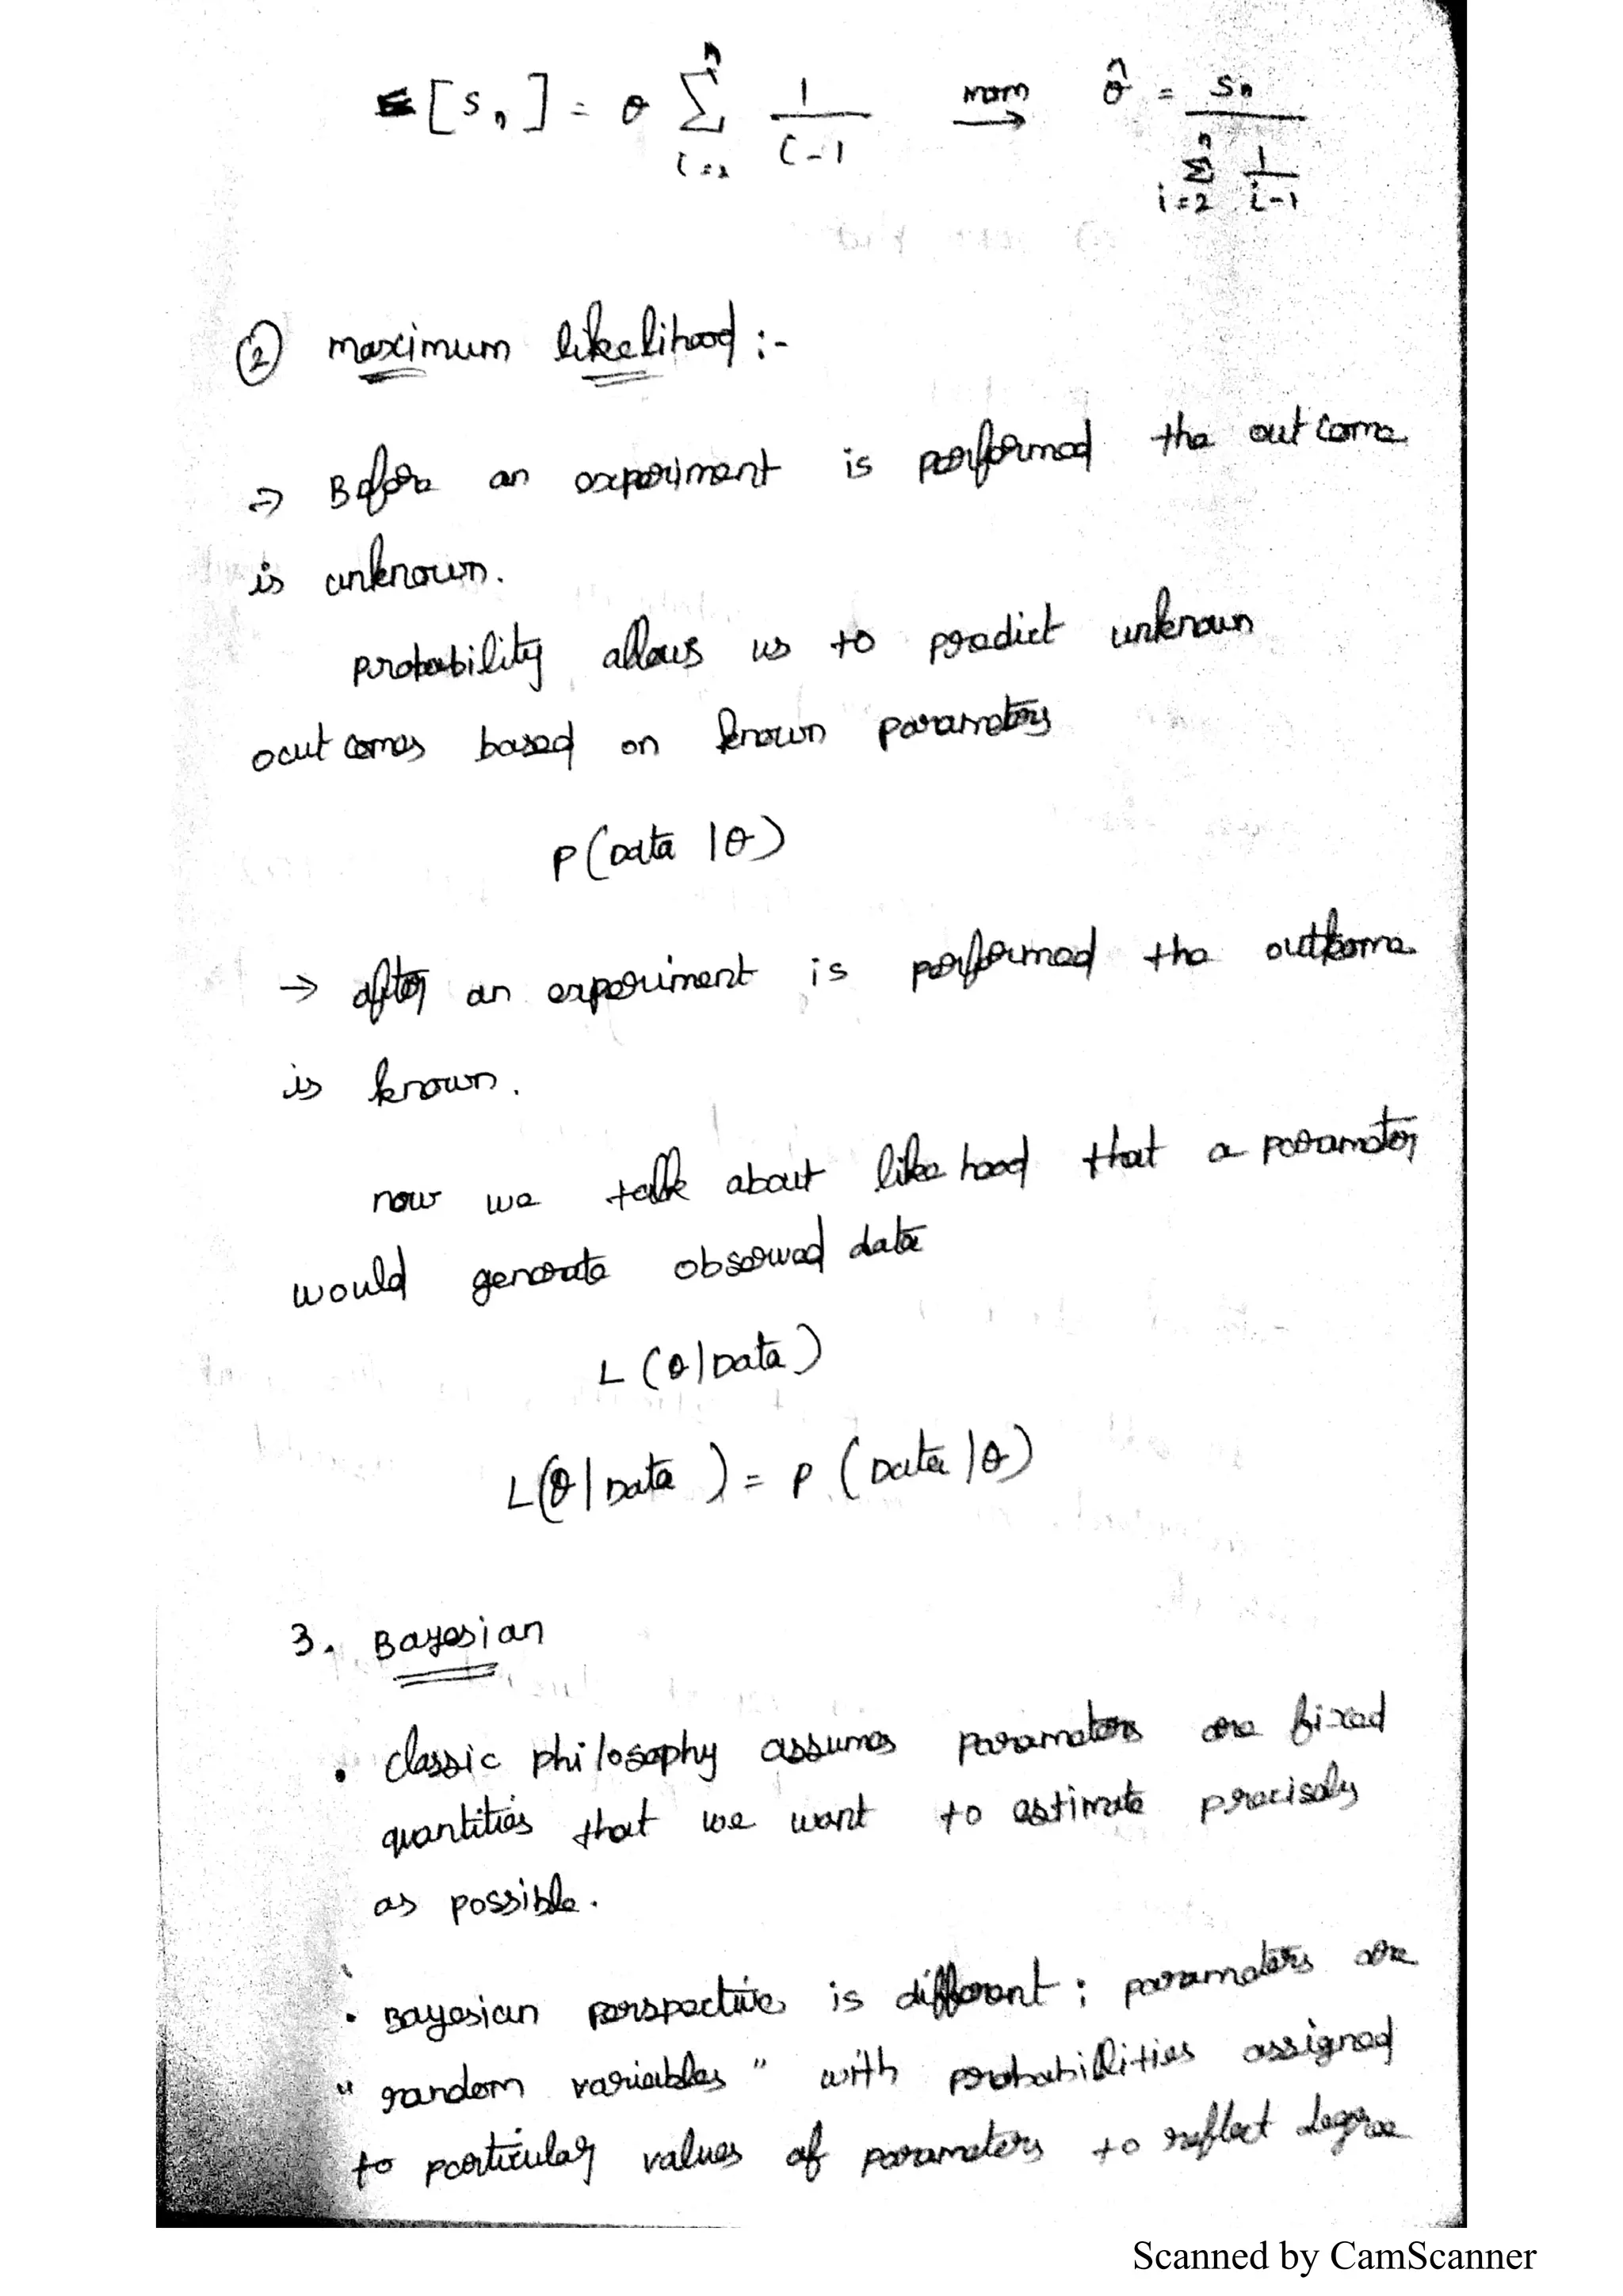 E[Sn] = θ Σ_{i=2}^{n} 1/(i-1) →(mom) θ̂ = Sn / Σ_{i=2}^{n} 1/(i-1)
② maximum likelihood :-
⇒ Before an experiment is performed the outcome
is unknown.
probability allows us to predict unknown
outcomes based on known parameters
P(Data | θ)
→ after an experiment is performed the outcome
is known.
now we talk about like hood that a parameter
would generate observed data
L (θ | Data)
L(θ | Data) = P (Data | θ)
3. Bayesian
• classic philosophy assumes parameters are fixed
quantities that we want to estimate precisely
as possible.
• Bayesian perspective is different ; parameters are
" random variables " with probabilities assigned
to particular values of parameters to reflect degree
Scanned by CamScanner